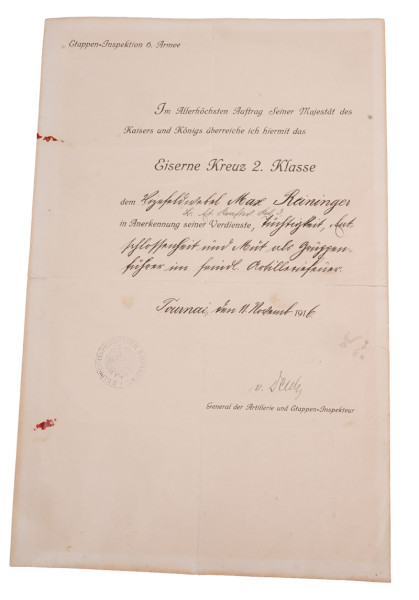 Etappen-Inspektion 6. Armee
Im Allerhöchsten Auftrag Seiner Majestät des
Kaisers und Königs überreiche ich hiermit das
Eiserne Kreuz 2. Klasse
dem Vizefeldwebel Max Reininger
in Anerkennung seiner Verdienste, Tüchtigkeit, Ent-
schlossenheit und Mut als Gruppen-
führer im feindl. Artilleriefeuer.
Tournai, den 11. Novemb 1916
General der Artillerie und Etappen-Inspekteur